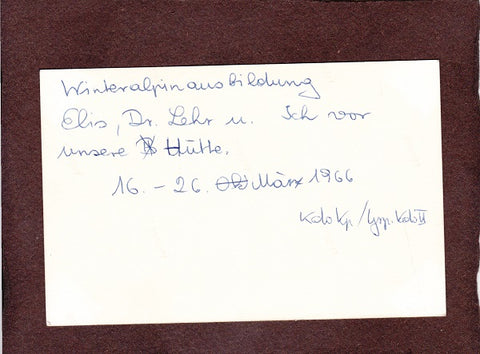 Winteralpinausbildung
Elis, Dr. Lehr u. Ich vor
unsere Hütte.
16. - 26. März 1966
KdoKp/Grp.Kdo II